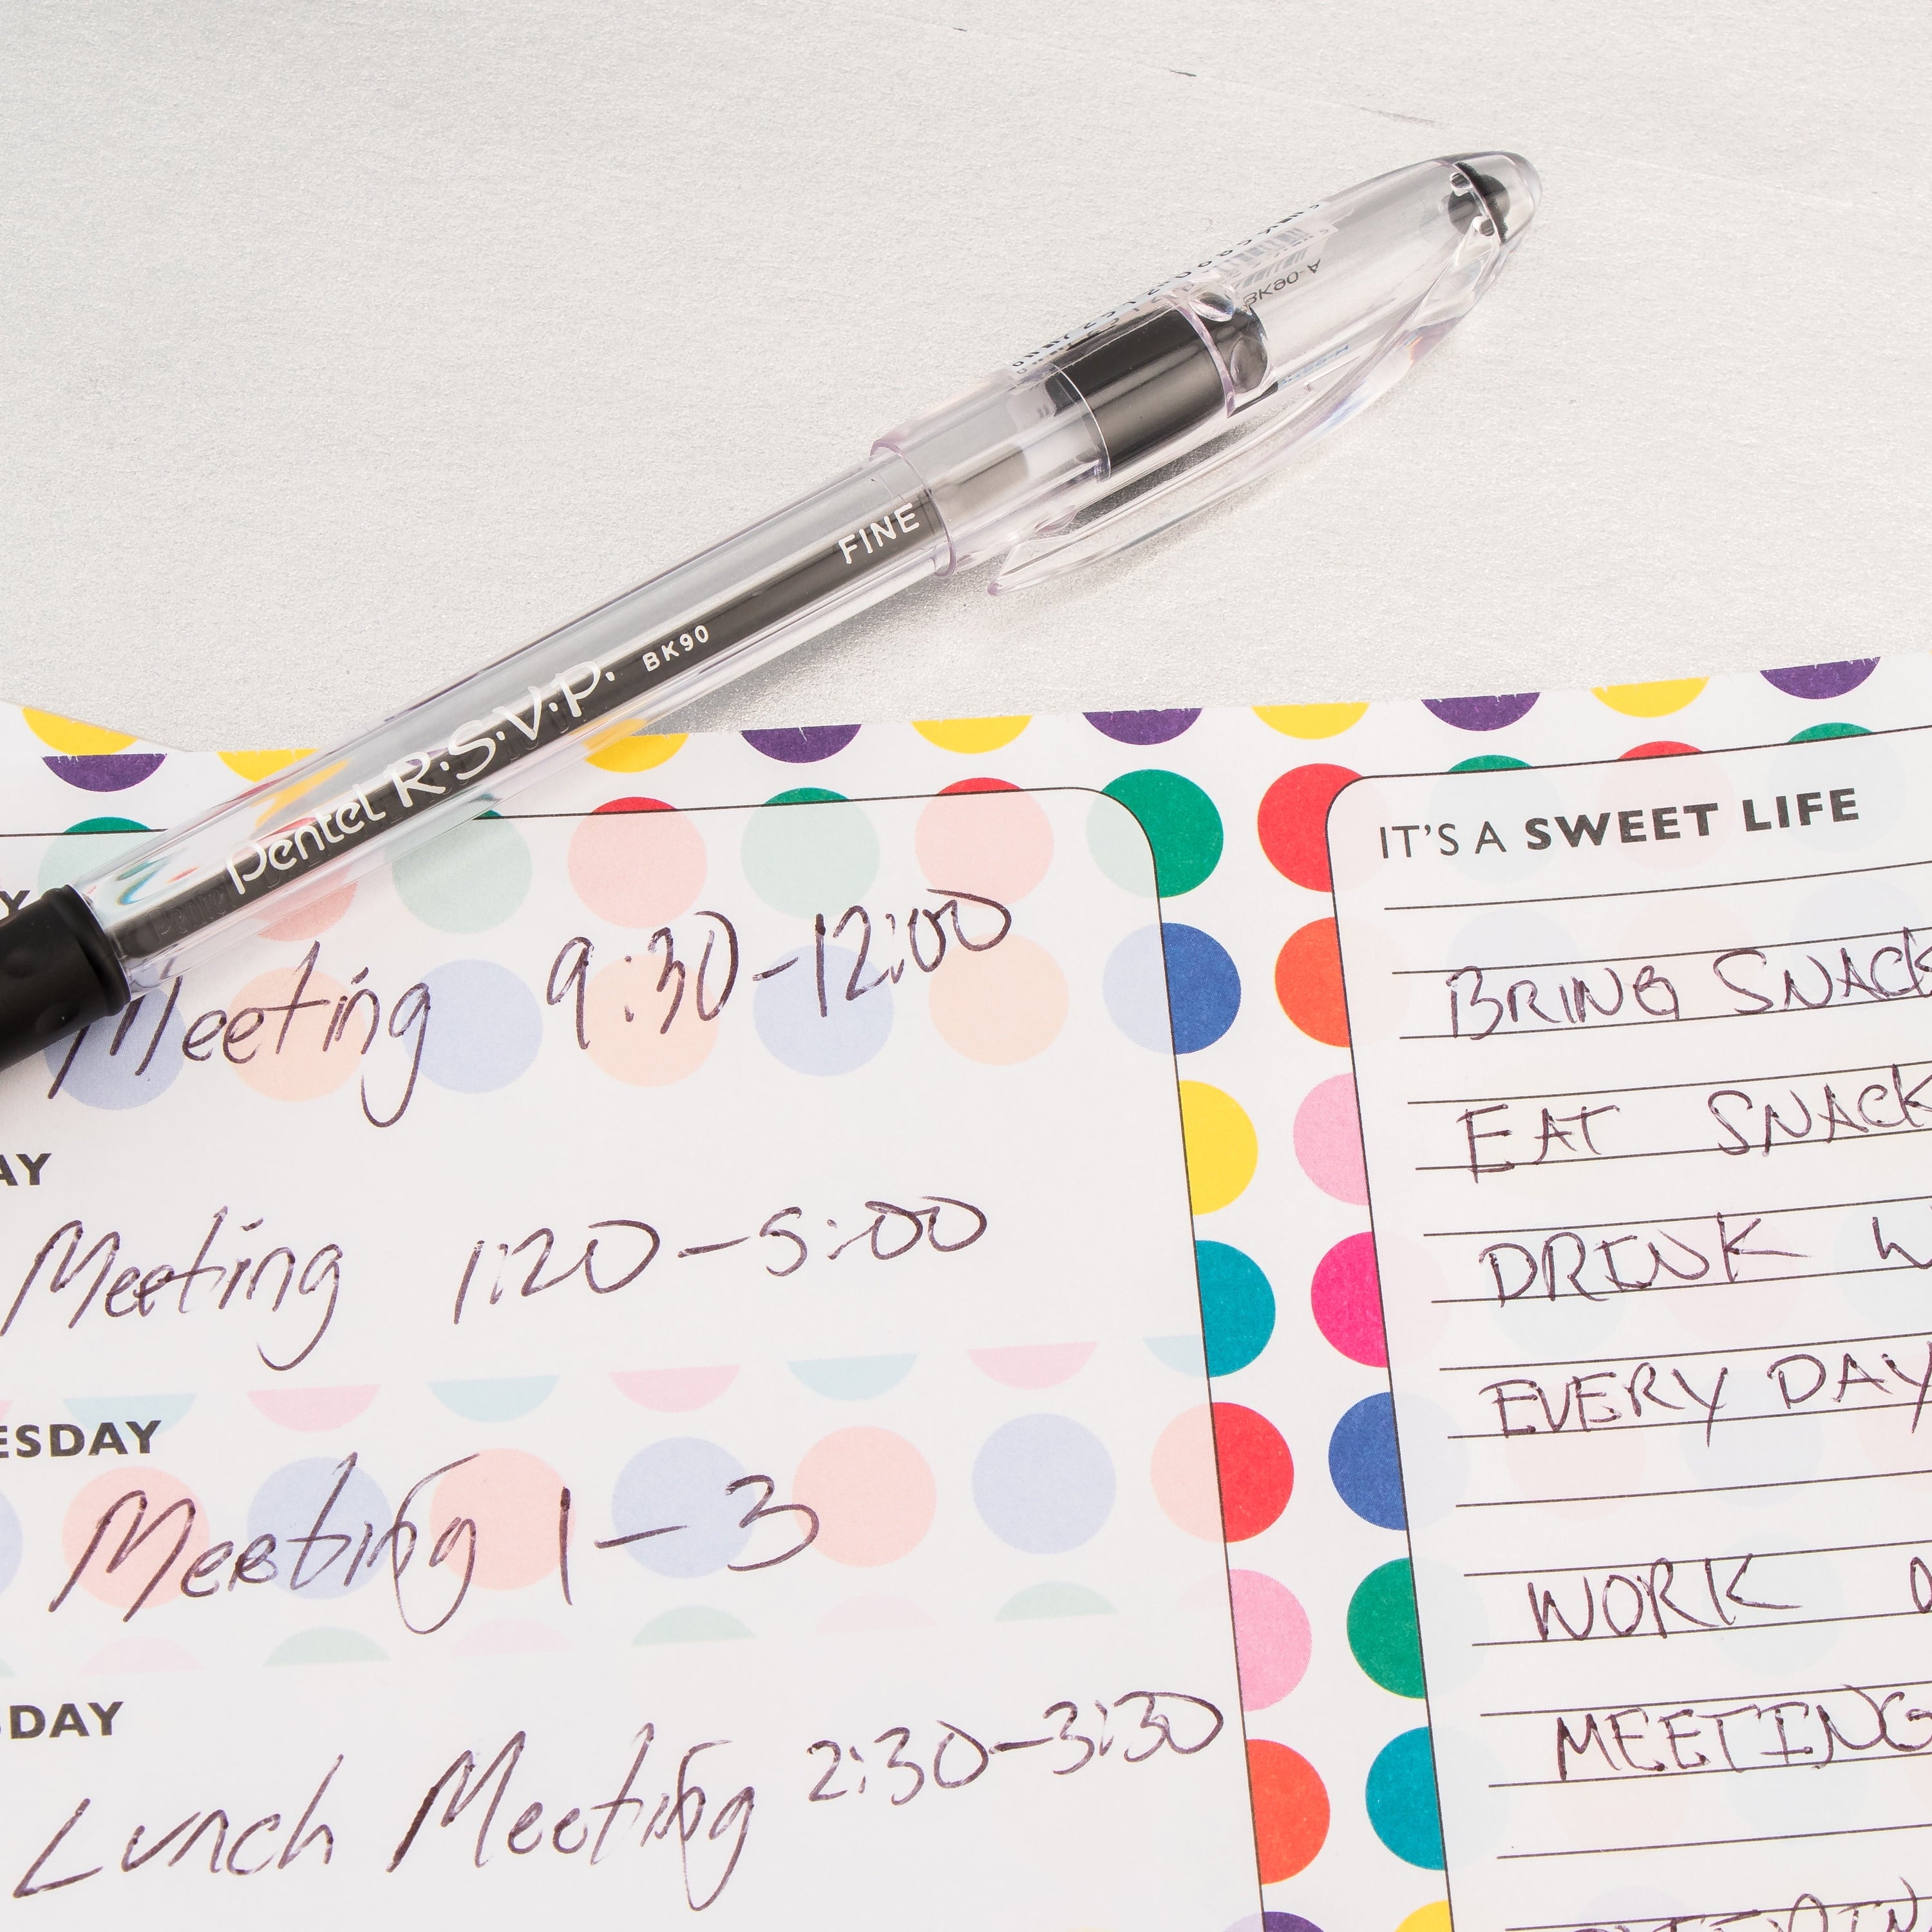 Pentel R.S.V.P. BK90 FINE
BK90-A
IT'S A SWEET LIFE
Meeting 9:30-12:00
AY
Meeting 1:20-5:00
ESDAY
Meeting 1-3
SDAY
Lunch Meeting 2:30-3:30
BRING SNACK
EAT SNACK
DRINK W
EVERY DAY
WORK
MEETING